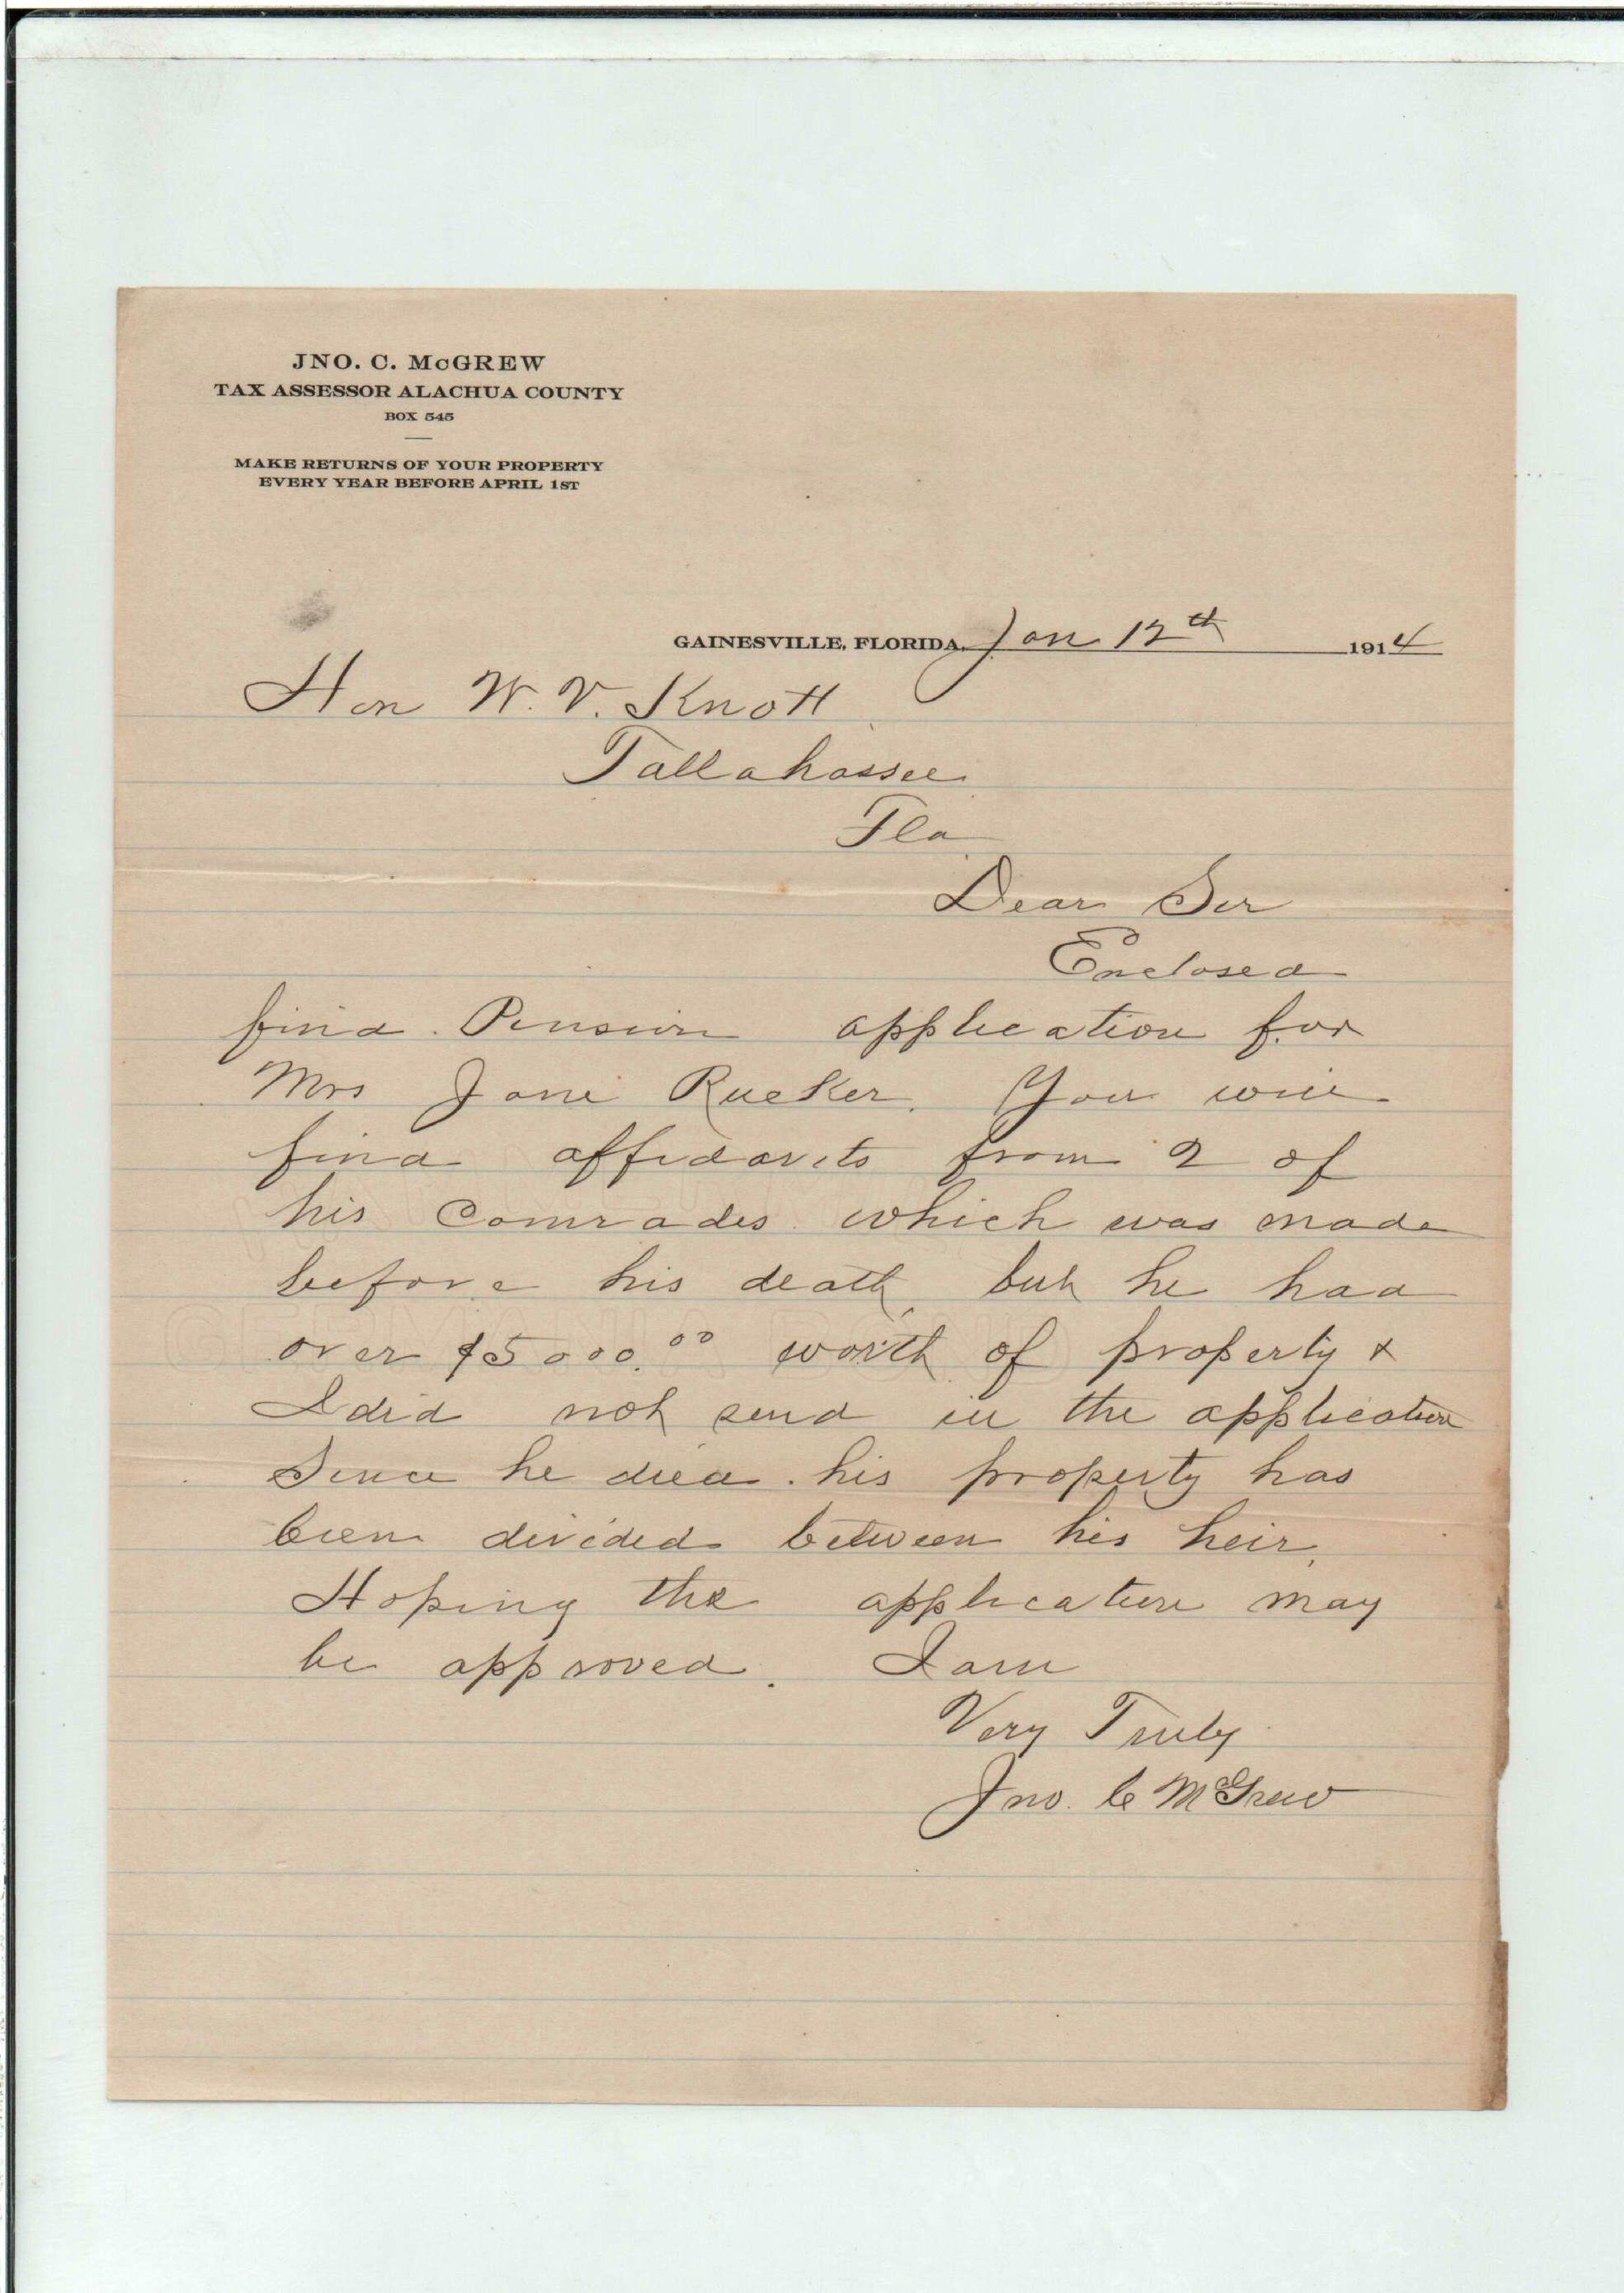 JNO. C. McGREW
TAX ASSESSOR ALACHUA COUNTY
BOX 545
MAKE RETURNS OF YOUR PROPERTY
EVERY YEAR BEFORE APRIL 1ST
GAINESVILLE, FLORIDA, Jan 12th 1914
Hon W. V. Knott
Tallahassee
Fla
Dear Sir
Enclosed
find Pension application for
Mrs Jane Rucker. You will
find affidavits from 2 of
his Comrades which was made
before his death, but he had
over $5000.00 worth of property &
I did not send in the application
Since he died his property has
been divided between his heir,
Hoping the application may
be approved. I am
Very Truly
Jno. C McGrew